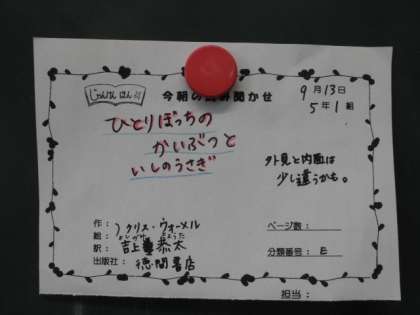 じゅんかん ほん
今朝の読み聞かせ
9月13日
5年1組
ひとりぼっちの
かいぶつと
いしのうさぎ
外見と内面は
少し違うかも。
作：クリス・ウォーメル
絵：
よしがみ きょうた
訳：吉上恭太
出版社：徳間書店
ページ数：
分類番号：E
担当：